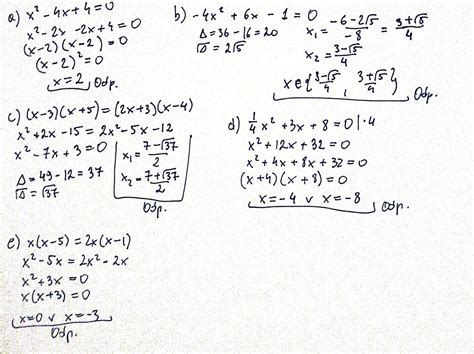 a) x² - 4x + 4 = 0
x² - 2x - 2x + 4 = 0
(x-2)(x-2) = 0
(x-2)² = 0
x = 2 Odp.
b) -4x² + 6x - 1 = 0
Δ = 36 - 16 = 20
√Δ = 2√5
x₁ = (-6-2√5)/(-8) = (3+√5)/4
x₂ = (3-√5)/4
x ∈ {(3-√5)/4, (3+√5)/4} Odp.
c) (x-3)(x+5) = (2x+3)(x-4)
x² + 2x - 15 = 2x² - 5x - 12
x² - 7x + 3 = 0
Δ = 49 - 12 = 37
√Δ = √37
x₁ = (7-√37)/2
x₂ = (7+√37)/2
Odp.
d) ¼x² + 3x + 8 = 0 |·4
x² + 12x + 32 = 0
x² + 4x + 8x + 32 = 0
(x+4)(x+8) = 0
x = -4 ∨ x = -8
Odp.
e) x(x-5) = 2x(x-1)
x² - 5x = 2x² - 2x
x² + 3x = 0
x(x+3) = 0
x=0 ∨ x=-3
Odp.